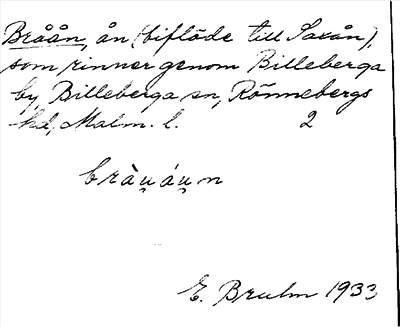 Bråån, ån (biflöde till Saxån),
som rinner genom Billeberga
by, Billeberga sn, Rönnebergs
hd, Malm. l. 2
bràu̯áu̯n
E. Bruhn 1933